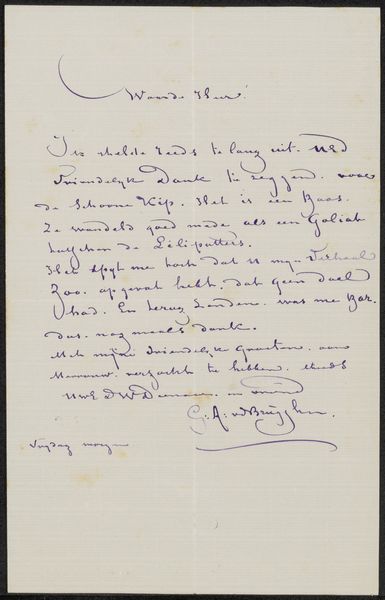 Waarde Heer!
Ik stelde reeds te lang uit. UEd
Vriendelyk Dank te zeggen. voor
de Schoone Kip. Het is een Baas.
Ze wandeld goed mede als een Goliath
tusschen de Lili-putters.
Het spyt me toch dat U myn Verhaal
Zoo. opgevat hebt. dat geen doel
had. En terug zenden. was me
dus. nog maals dank.
Met mijne Vriendelyke Groeten. aan
Mevrouw. verzocht te hebben. steeds
UwE DW Dienaar. en vriend
G: A: vdBrugghen.
Vrydag morgen